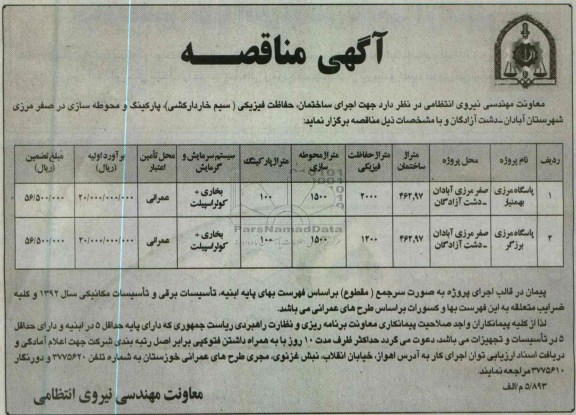 آگهی مناقصه
معاونت مهندسی نیروی انتظامی در نظر دارد جهت اجرای ساختمان، حفاظت فیزیکی ( سیم خاردارکشی)، پارکینگ و محوطه سازی در صفر مرزی
شهرستان آبادان ــ دشت آزادگان و با مشخصات ذیل مناقصه برگزار نماید:
ردیف نام پروژه محل پروژه متراژ ساختمان متراژ حفاظت فیزیکی متراژ محوطه سازی متراژ پارکینگ سیستم سرمایش و گرمایش محل تأمین اعتبار برآورد اولیه (ریال) مبلغ تضمین (ریال)
۱ پاسگاه مرزی بهمنیار صفر مرزی آبادان ــ دشت آزادگان ۴۶۲,۹۷ ۲۰۰۰ ۱۵۰۰ ۱۰۰ بخاری + کولر اسپیلت عمرانی ۲۰/۰۰۰/۰۰۰/۰۰۰ ۵۶/۵۰۰/۰۰۰
۲ پاسگاه مرزی برزگر صفر مرزی آبادان ــ دشت آزادگان ۴۶۲,۹۷ ۱۲۰۰ ۱۵۰۰ ۱۰۰ بخاری + کولر اسپیلت عمرانی ۲۰/۰۰۰/۰۰۰/۰۰۰ ۵۶/۵۰۰/۰۰۰
ParsNamadData
پیمان در قالب اجرای پروژه به صورت سرجمع ( مقطوع) براساس فهرست بهای پایه ابنیه، تأسیسات برقی و تأسیسات مکانیکی سال ۱۳۹۲ و کلیه
ضرایب متعلقه به این فهرست بها و کسورات براساس طرح های عمرانی می باشد.
لذا از کلیه پیمانکاران واجد صلاحیت پیمانکاری معاونت برنامه ریزی و نظارت راهبردی ریاست جمهوری که دارای پایه حداقل ۵ در ابنیه و دارای حداقل
۵ در تأسیسات و تجهیزات می باشد، دعوت می گردد حداکثر ظرف مدت ۱۰ روز با به همراه داشتن فتوکپی برابر اصل رتبه بندی شرکت جهت اعلام آمادگی و
دریافت اسناد ارزیابی توان اجرای کار به آدرس اهواز، خیابان انقلاب، نبش غزنوی، مجری طرح های عمرانی خوزستان به شماره تلفن ۳۷۷۵۶۲۰ و دورنگار
۳۷۷۵۶۱۰ مراجعه نمایند.
۵/۸۹۳ م/الف
معاونت مهندسی نیروی انتظامی